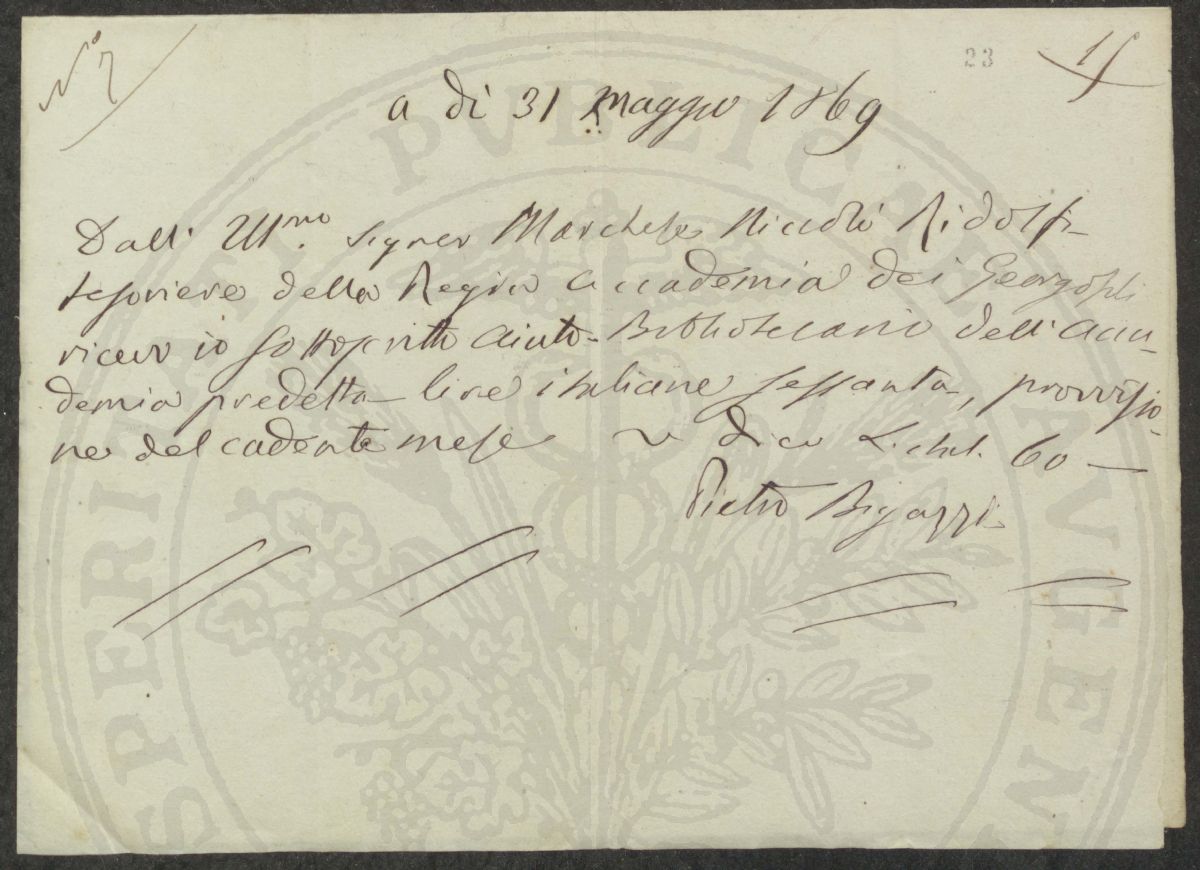 N° 7
23
15
a dì 31 Maggio 1869
Dall' Ill.mo Signor Marchese Niccolò Ridolfi
tesoriere della Regia Accademia dei Georgofili
ricevo io sottoscritto Aiuto-Bibliotecario dell'Acca-
demia predetta lire italiane sessanta, provvisio-
ne del cadente mese ~ dico L. ital. 60 —
Pietro Bigazzi
PROSPERITATI PVBLICAE AVGENDAE